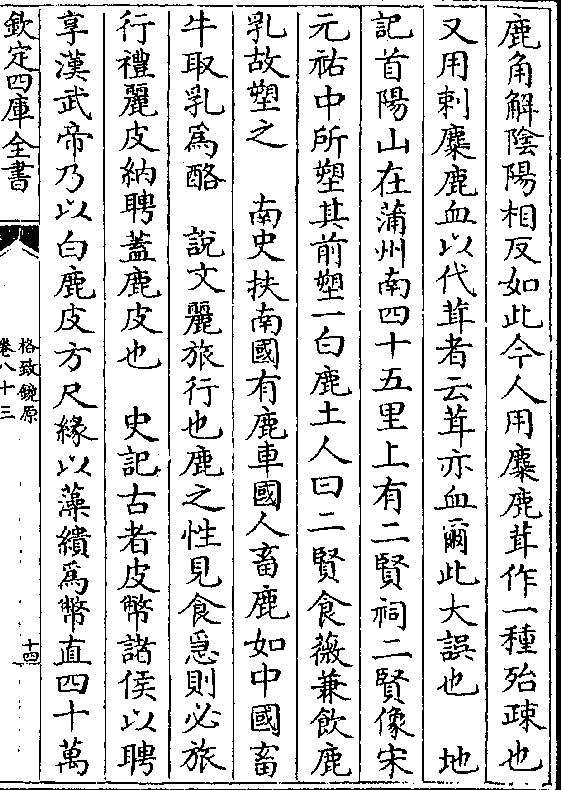 鹿角解陰陽相反如此今人用麋鹿茸作一種殆疎也
又用刺麋鹿血以代茸者云茸亦血爾此大誤也　地
記首陽山在蒲州南四十五里上有二賢祠二賢像宋
元祐中所塑其前塑一白鹿土人曰二賢食薇兼飲鹿
乳故塑之　南史扶南國有鹿車國人畜鹿如中國畜
牛取乳為酪　說文麗旅行也鹿之性見食急則必旅
行禮麗皮納聘蓋鹿皮也　史記古者皮幣諸侯以聘
享漢武帝乃以白鹿皮方尺緣以藻繢為幣直四十萬
欽定四庫全書
格致鏡原
卷八十三
十四